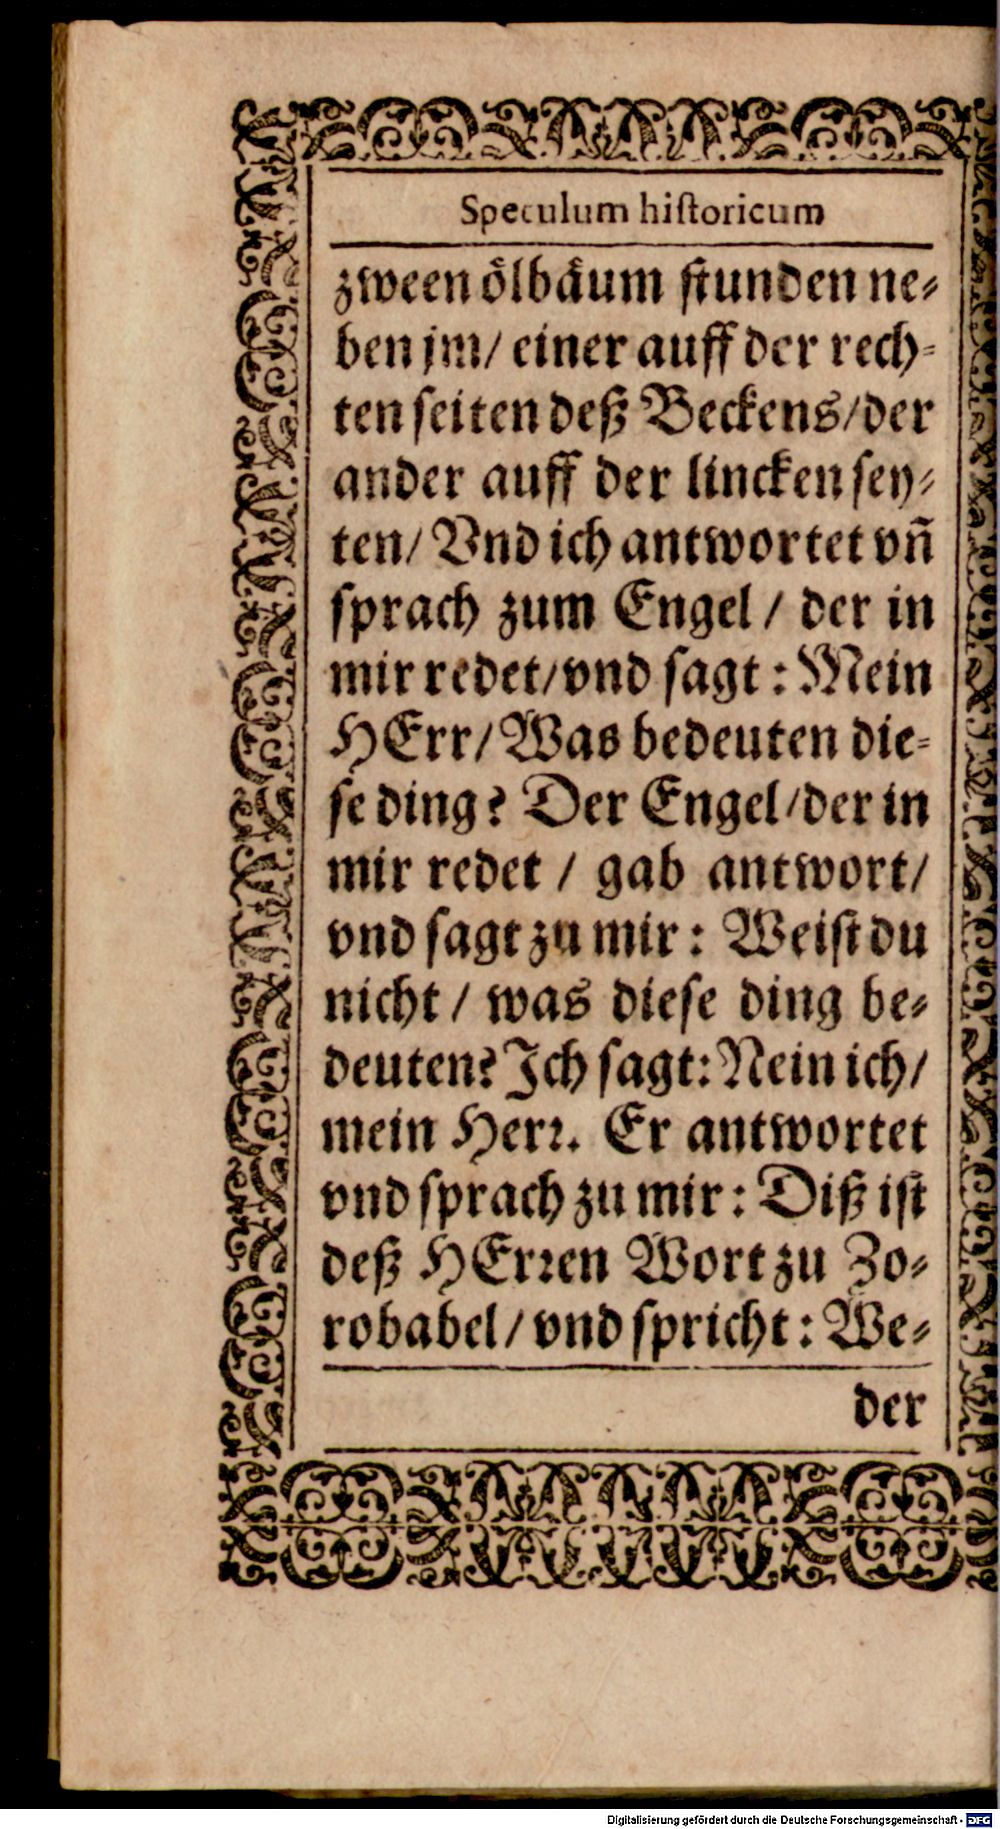 Speculum hiſtoricum
zween ölbäum ſtunden ne⸗
ben jm/ einer auff der rech⸗
ten ſeiten deß Beckens/der
ander auff der lincken ſey⸗
ten/ Vnd ich antwortet vñ
ſprach zum Engel / der in
mir redet/vnd ſagt : Mein
HErr/ Was bedeuten die⸗
ſe ding? Der Engel/der in
mir redet / gab antwort/
vnd ſagt zu mir : Weiſt du
nicht / was dieſe ding be⸗
deuten? Ich ſagt: Nein ich/
mein Herꝛ. Er antwortet
vnd ſprach zu mir : Diß iſt
deß HErꝛen Wort zu Zo⸗
robabel/ vnd ſpricht : We⸗
der
Digitalisierung gefördert durch die Deutsche Forschungsgemeinschaft - DFG